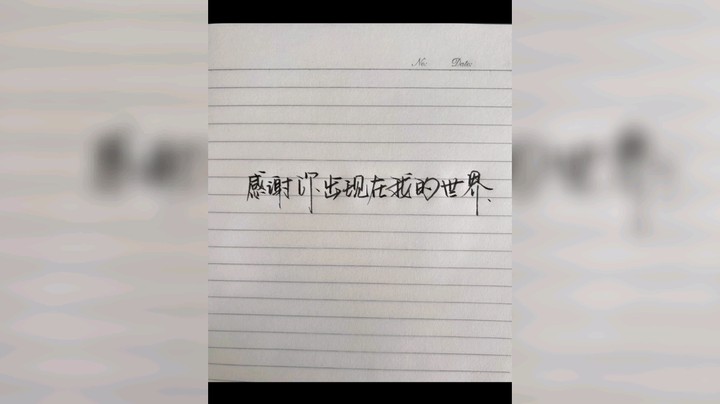 No: Date:
感谢你出现在我的世界、